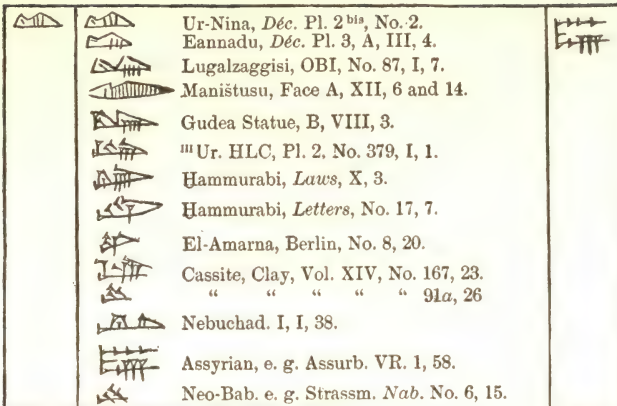 Ur-Nina, Déc. Pl. 2 bis, No. 2.
Eannadu, Déc. Pl. 3, A, III, 4.
Lugalzaggisi, OBI, No. 87, I, 7.
Maništusu, Face A, XII, 6 and 14.
Gudea Statue, B, VIII, 3.
III Ur. HLC, Pl. 2, No. 379, I, 1.
Ḫammurabi, Laws, X, 3.
Ḫammurabi, Letters, No. 17, 7.
El-Amarna, Berlin, No. 8, 20.
Cassite, Clay, Vol. XIV, No. 167, 23.
“ “ “ “ “ 91a, 26
Nebuchad. I, I, 38.
Assyrian, e. g. Assurb. VR. 1, 58.
Neo-Bab. e. g. Strassm. Nab. No. 6, 15.